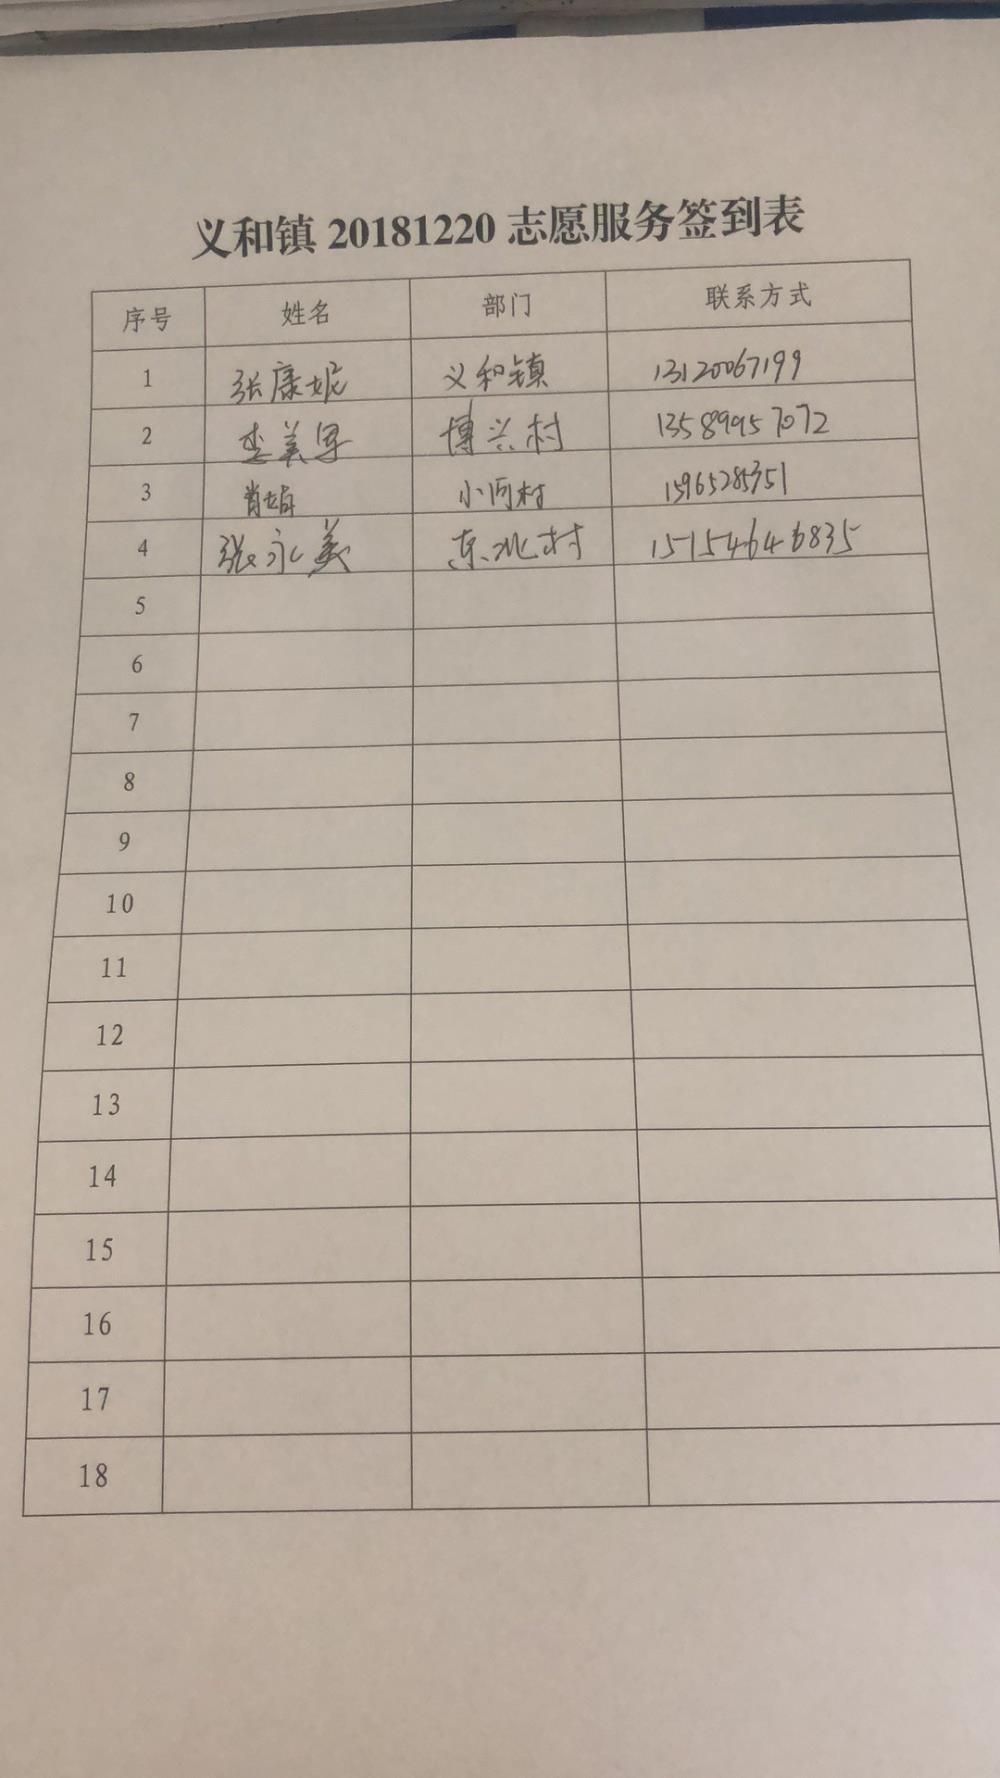 义和镇 20181220 志愿服务签到表
序号 姓名 部门 联系方式
1 张康妮 义和镇 13120067199
2 李美军 博兴村 13589957072
3 肖婧 小河村 15965285351
4 张永美 东北村 15154646835
5
6
7
8
9
10
11
12
13
14
15
16
17
18